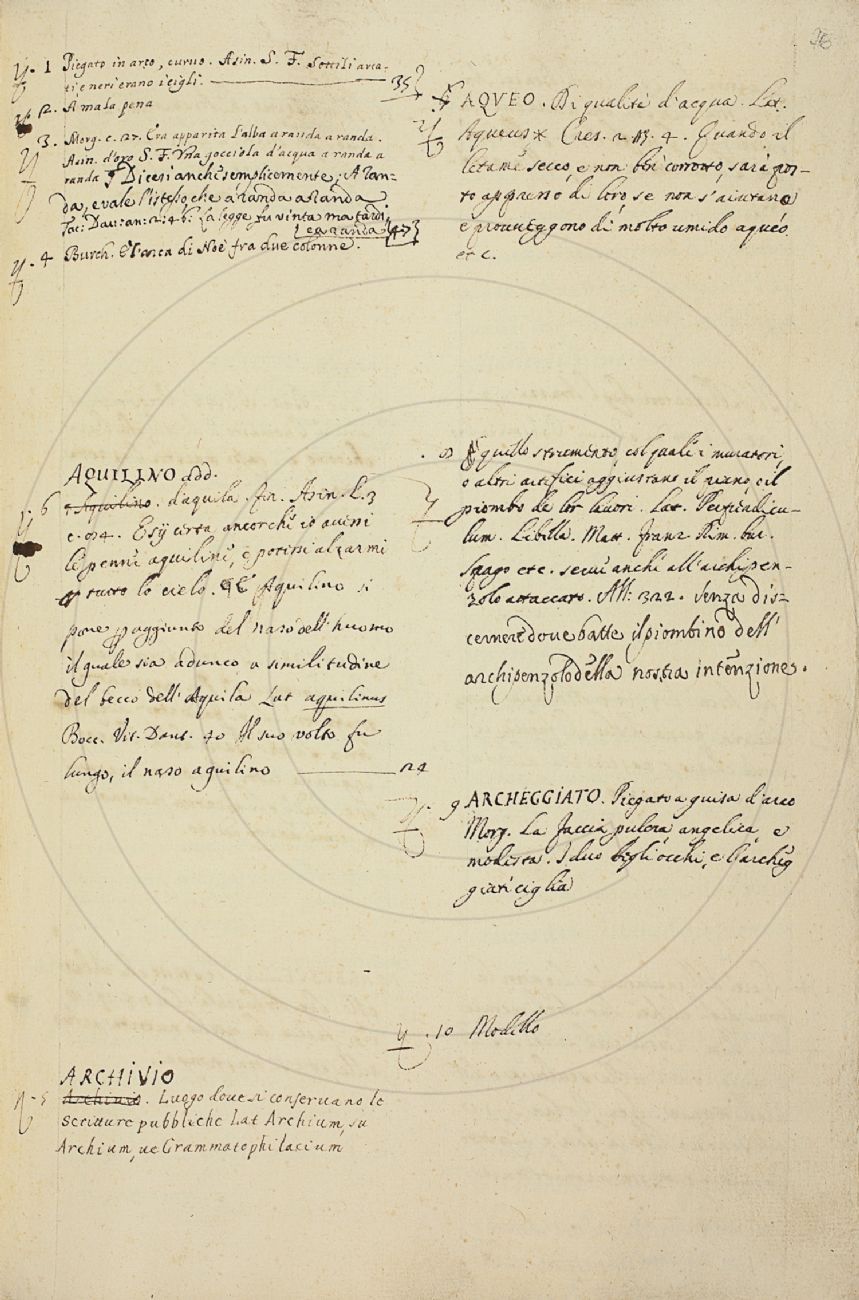 36
1 Piegato in arco, curuo. Asin. S. F. Sottili arca-
ti, e neri erano i cigli. 35
2. A mala pena
3. Morg. c. 27. Era apparita l'alba a randa a randa.
Asin. d'oro S. F. Vna gocciola d'acqua a randa a
randa Dicesi anche semplicemente, A ran-
da, e vale l'istesso, che a randa a randa.
Tac: Dau: an: 2: 46: La legge fu vinta ma tardi,
e a randa 47
4 Burch. E l'arca di Noè fra due colonne.
AQUILINO add.
6 Aquilino. d'aquila. Fir. Asin. L. 3
c. 94. Esij certa ancorchè io auessi
le penne aquiline, e potessi alzarmi
tutto lo cielo. Aquilino si
pone aggiunto del naso dell'huomo
il quale sia adunco a similitudine
del becco dell'Aquila Lat aquilinus
Bocc. Vit. Dant. 40 Il suo volto fu
lungo, il naso aquilino 24
ARCHIVIO
5 Archiuio. Luogo doue si conseruano le
scritture pubbliche Lat Archium, su
Archium, ue Grammatophilacium
AQVEO. Di qualità d'acqua. Lat.
Aqueus Cres. 2. 13. 4. Quando il
letame secco, e non ben corrotto, sarà pos-
to appresso di loro, se non s'aiutano
e proueggono di molto umido aqueo.
etc.
È quello strumento, col quale i muratori,
o altri artefici aggiustano il piano, o il
piombo de lor lauori. Lat. Perpendicu-
lum. Libella. Matt. Franz. Rim. bur.
Spago etc. serue anche all'archipen-
zolo attaccato. All: 322. Senza dis-
cernere doue batte il piombino dell'
archipenzolo della nostra intenzione.
9 ARCHEGGIATO. Piegato a guisa d'arco
Morg. La faccia pulcra angelica, e
modesta. I duo begli occhi, e l'archeg
giate ciglia
10 Modello